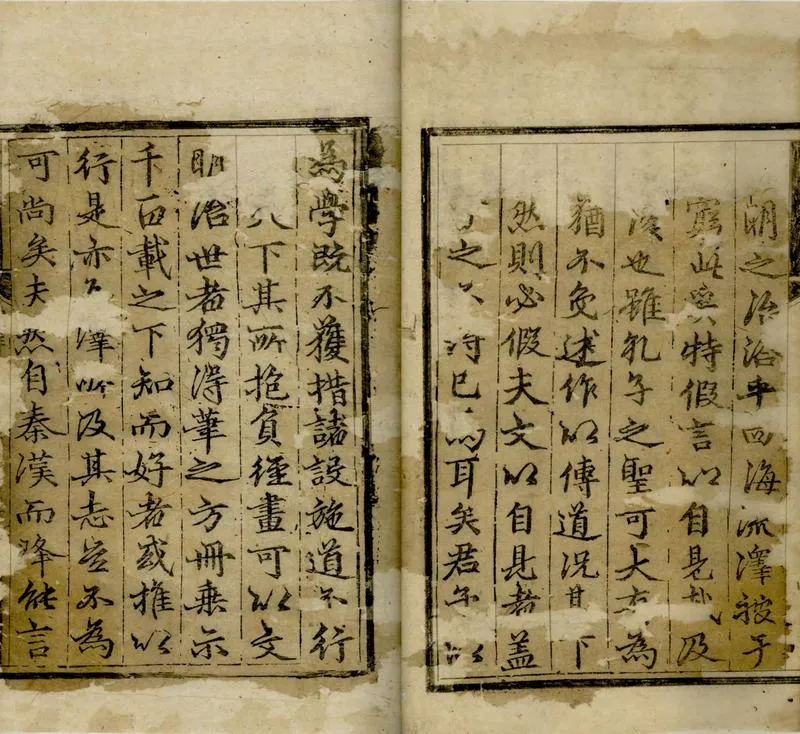 之治洽乎四海流澤被于
此奚特假言以自見哉及
也雖孔子之聖可大有為
猶不免述作以傳道況其下
然則必假夫文以自見者蓋
之不得已耳矣君子以
為學既不獲措諸設施道不行
下其所抱負經畫可以文
明治世者獨得筆之方冊垂示
千百載之下知而好者或推以
行是亦澤所及其志豈不為
可尚矣夫然自秦漢而降能言